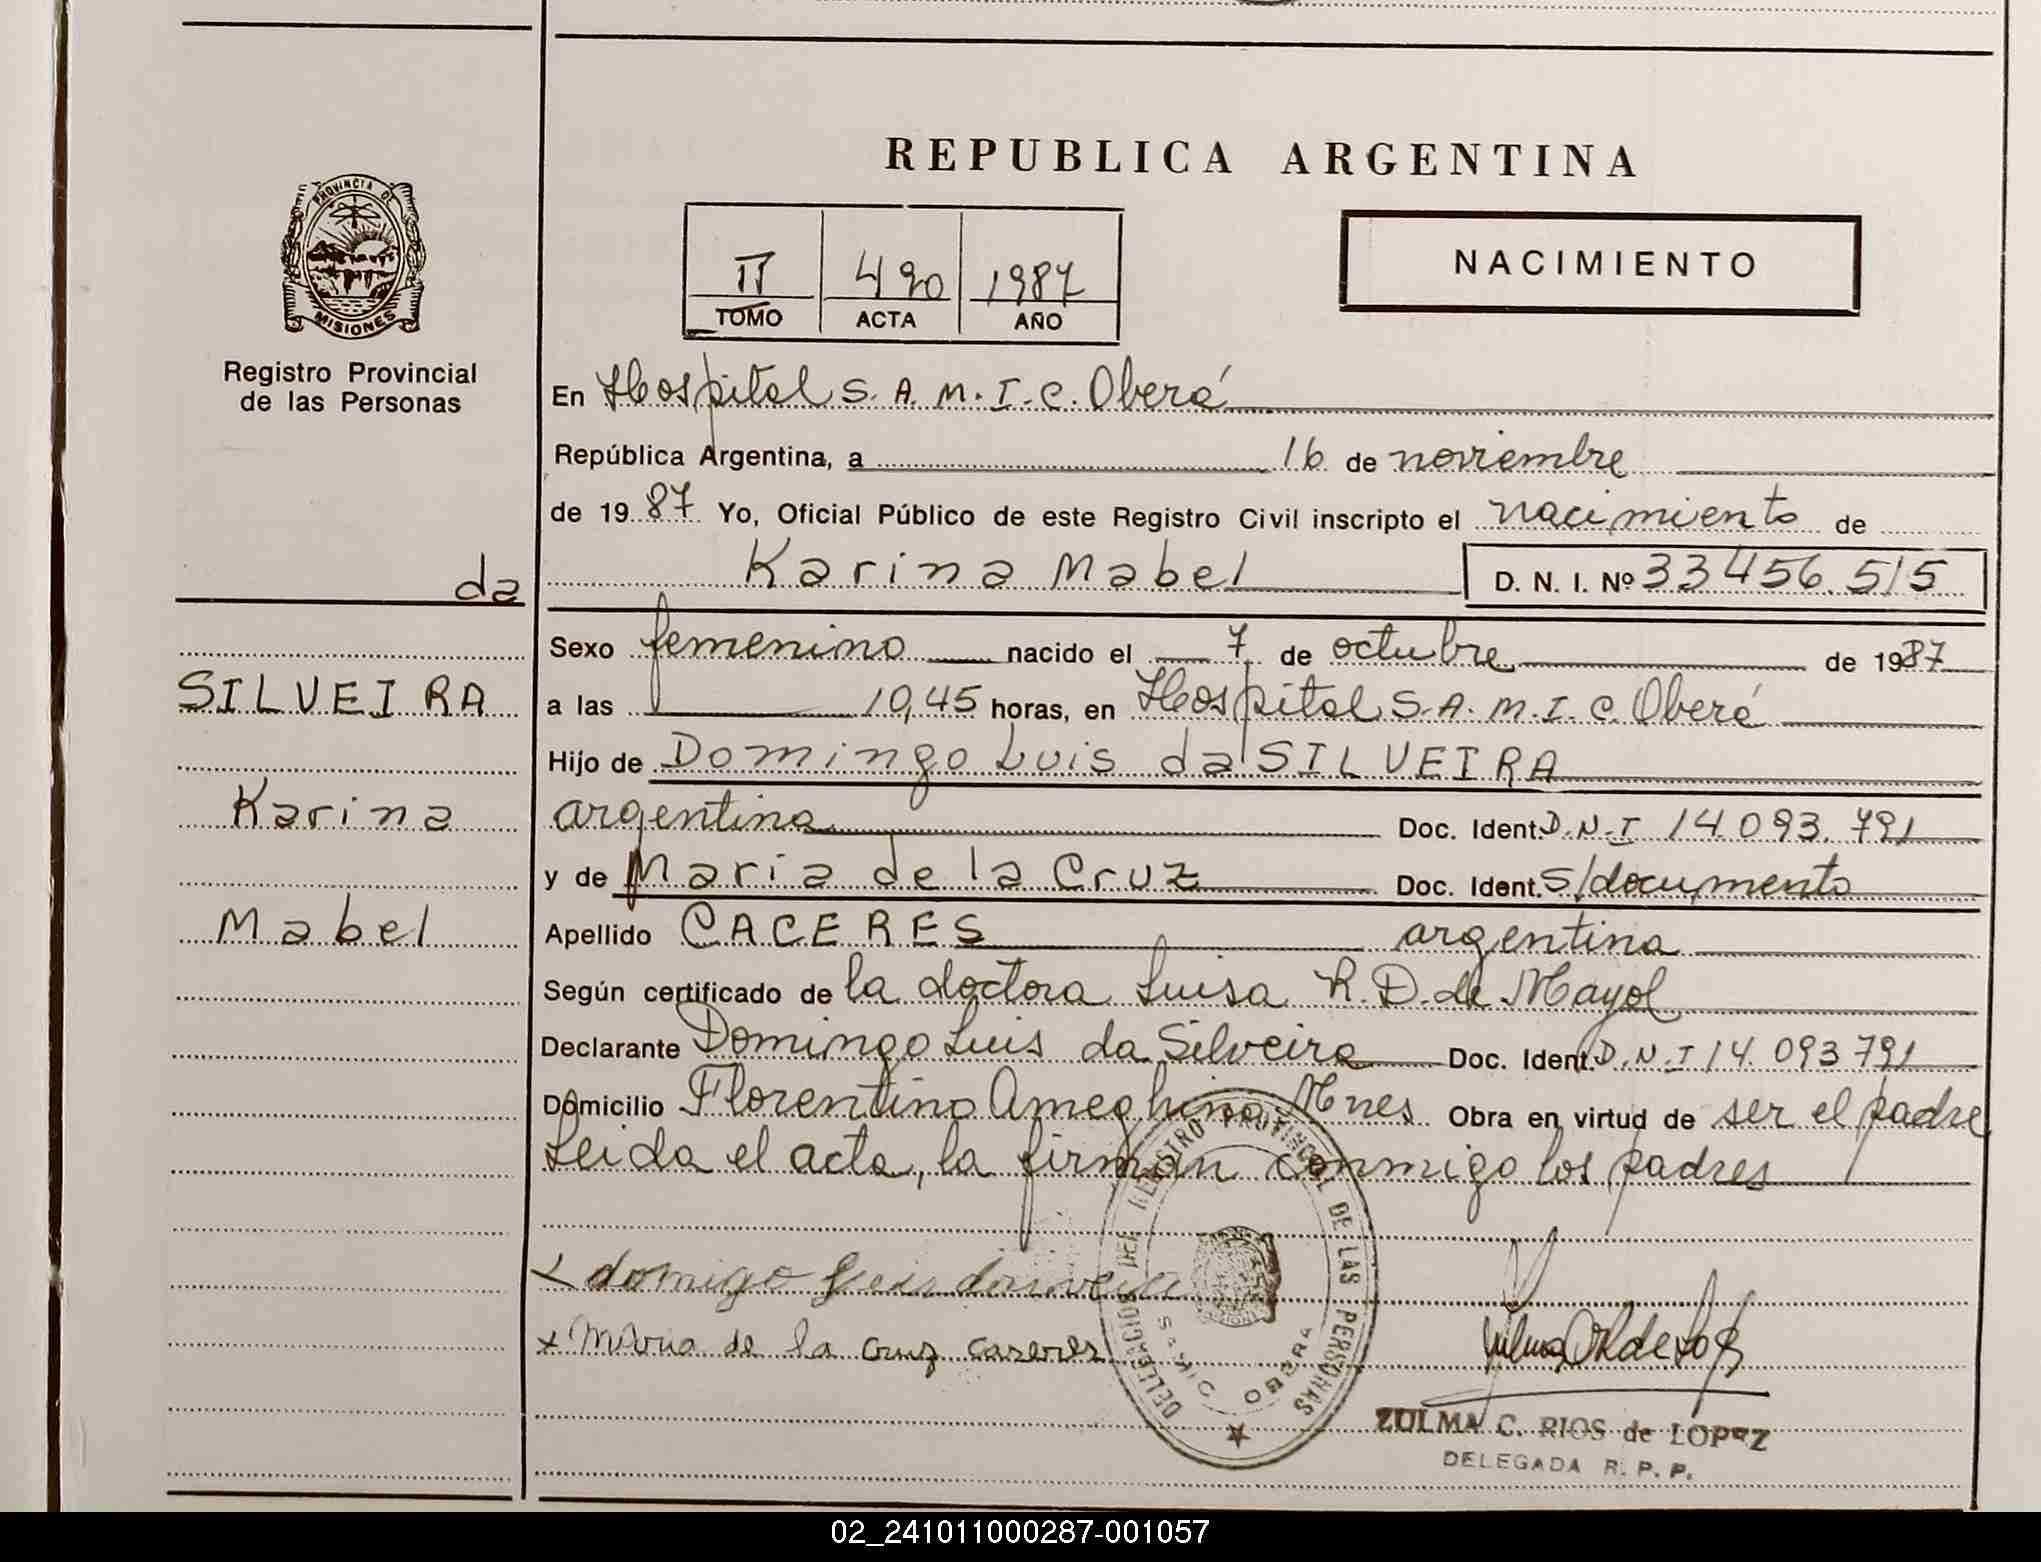 REPUBLICA ARGENTINA
PROVINCIA DE
MISIONES
II 490 1987
TOMO ACTA AÑO
NACIMIENTO
Registro Provincial
de las Personas
da
SILVEIRA
Karina
Mabel
En Hospital S.A.M.I.C. Oberá
República Argentina, a 16 de noviembre
de 1987 Yo, Oficial Público de este Registro Civil inscripto el nacimiento de
Karina Mabel D. N. I. Nº 33456.515
Sexo femenino nacido el 7 de octubre de 1987
a las 10,45 horas, en Hospital S.A.M.I.C. Oberá
Hijo de Domingo Luis da SILVEIRA
argentina Doc. Ident. D.N.I 14.093.791
y de Maria de la Cruz Doc. Ident. S/documento
Apellido CACERES argentina
Según certificado de la doctora Luisa R. D. de Mayol
Declarante Domingo Luis da Silveira Doc. Ident. D.N.I 14.093791
Domicilio Florentino Ameghino Mnes Obra en virtud de ser el padre
Leida el acta, la firman conmigo los padres
domigo Luis
Maria de la Cruz caseres
DELEGACION DEL REGISTRO PROVINCIAL DE LAS PERSONAS
SAMIC OBERA
ZULMA C. RIOS de LOPEZ
DELEGADA R. P. P.
02_241011000287-001057